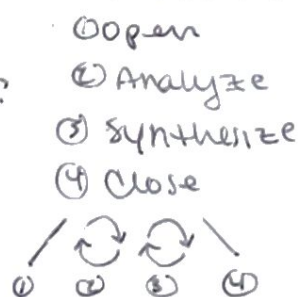 ① Open
② Analyze
③ Synthesize
④ Close
?
① ② ③ ④